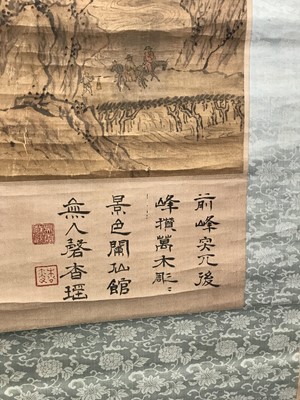 前峰突兀後
峰攢萬木彫〻
景色闌仙館
無人磬杳瑶